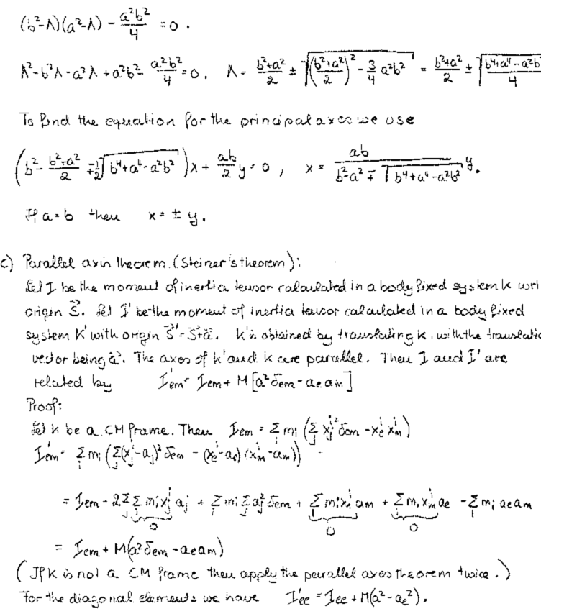 (b²-λ)(a²-λ) - a²b²/4 = 0.
λ²-b²λ-a²λ+a²b²- a²b²/4 = 0, λ = (b²+a²)/2 ± √(((b²+a²)/2)² - 3/4 a²b²) = (b²+a²)/2 ± √((b⁴+a⁴-a²b²)/4)
To find the equation for the principal axes we use
(b² - (b²+a²)/2 ∓ 1/2 √(b⁴+a⁴-a²b²)) x + ab/2 y = 0, x = ab/(b²-a² ∓ √(b⁴+a⁴-a²b²)) y.
If a=b then x = ± y.
c) Parallel axis theorem. (Steiner's theorem):
Let I be the moment of inertia tensor calculated in a body fixed system K with
origin Let I' be the moment of inertia tensor calculated in a body fixed
system K' with origin K' is obtained by translating K with the translation
vector being a. The axes of K' and K are parallel. Then I and I' are
related by I'em = Iem + M[a²δem - aeam]
Proof:
Let K be a CM frame. Then Iem = Σ mi (Σ xj² δem - xe xm)
I'em = Σ mi (Σ(xj-aj)² δem - (xe-ae)(xm-am))
= Iem - 2ΣΣ mixj aj + Σ mi Σ aj² δem + Σ mixe am + Σ mi xm ae - Σ mi aeam
0 0 0
= Iem + M(a²δem - aeam)
(If K is not a CM frame then apply the parallel axes theorem twice.)
For the diagonal elements we have I'ee = Iee + M(a²-ae²).